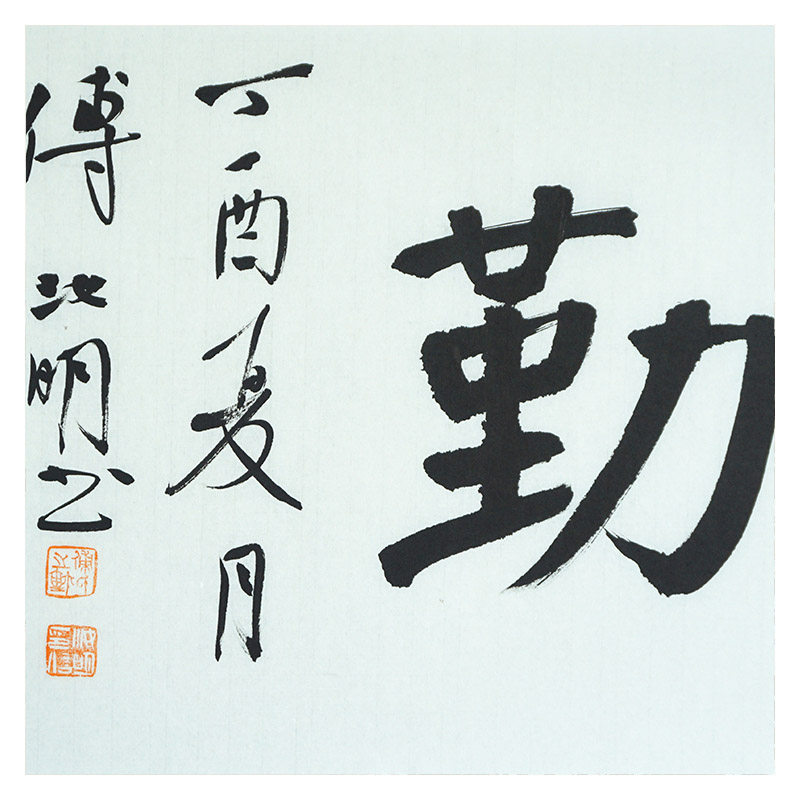 勤
丁酉夏月
傅江明书